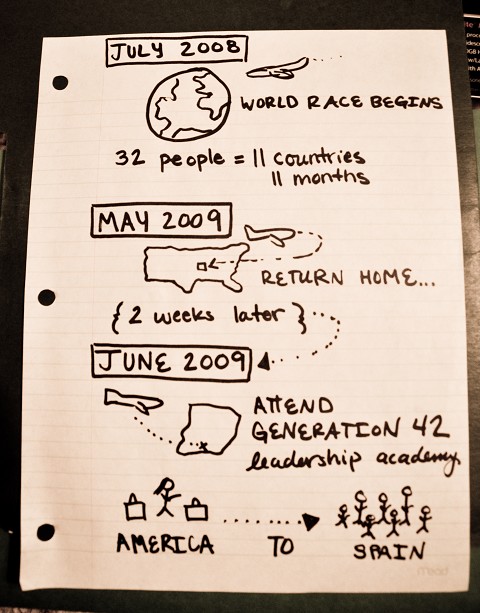 JULY 2008
WORLD RACE BEGINS
32 people = 11 countries
11 months
MAY 2009
RETURN HOME...
{ 2 weeks later }
JUNE 2009
ATTEND
GENERATION 42
leadership academy.
AMERICA TO SPAIN
mead